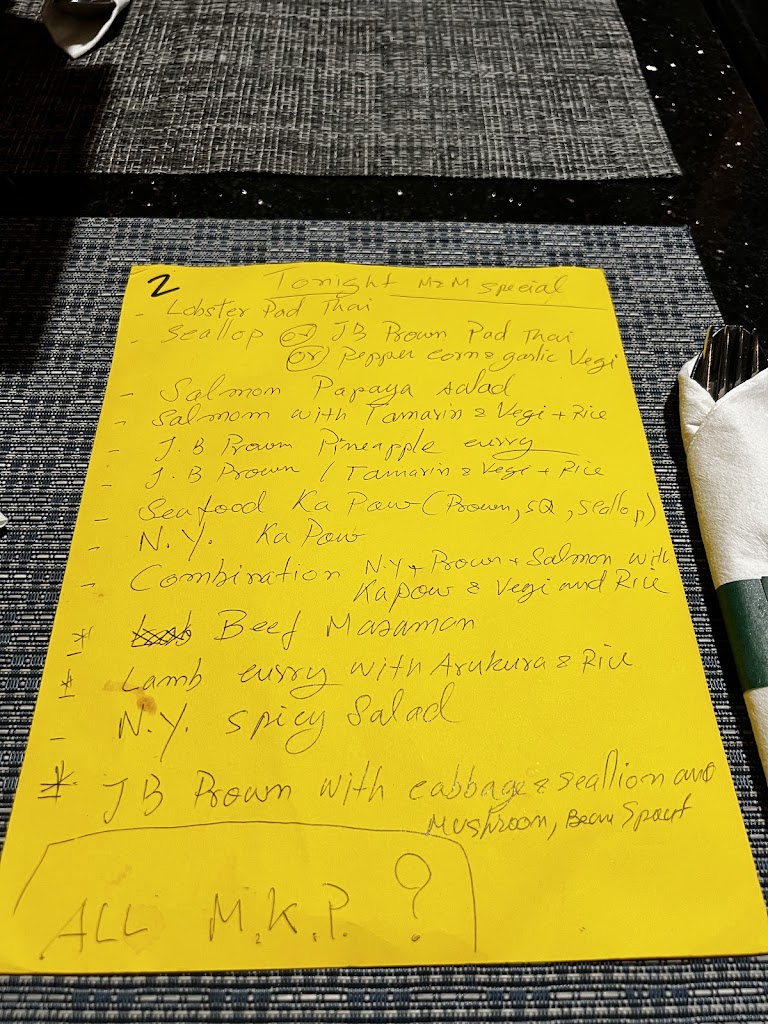 2 Tonight M&M special
- Lobster Pad Thai
- Scallop or JB Prown Pad Thai
or pepper corn & garlic Vegi
- Salmon Papaya salad
- Salmom with Tamarin & Vegi + Rice
- J.B Prown Pineapple curry
- J.B Prown / Tamarin & Vegi + Rice
- Seafood Ka Pow (Prown, SQ, Scallop)
- N.Y. Ka Pow
- Combination N.Y + Prown + Salmon with
Kapow & Vegi and Rice
* Beef Masaman
* Lamb curry with Arukura & Rice
- N.Y. spicy Salad
* JB Prown with cabbage & scallion and
Mushroom, Bean Spout
ALL M.K.P. ?